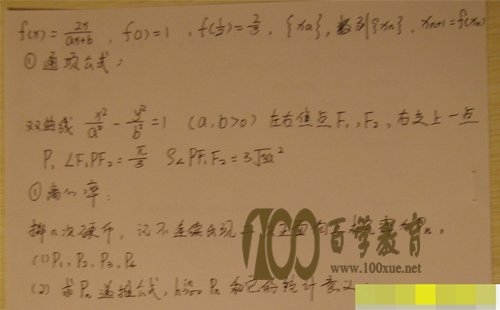 f(x)=2x/(ax+b), f(1)=1, f(1/2)=2/3, {xn}, 数列{xn}, xn+1=f(xn)
① 通项公式:
双曲线 x²/a² - y²/b² = 1 (a,b>0) 左右焦点F1,F2,右支上一点
P, ∠F1PF2=π/3 S△PF1F2=3√3a²
① 离心率:
掷n次硬币,记不连续出现
(1) P1, P2, P3, P4
(2) 求Pn递推公式,
100百学教育
www.100xue.net